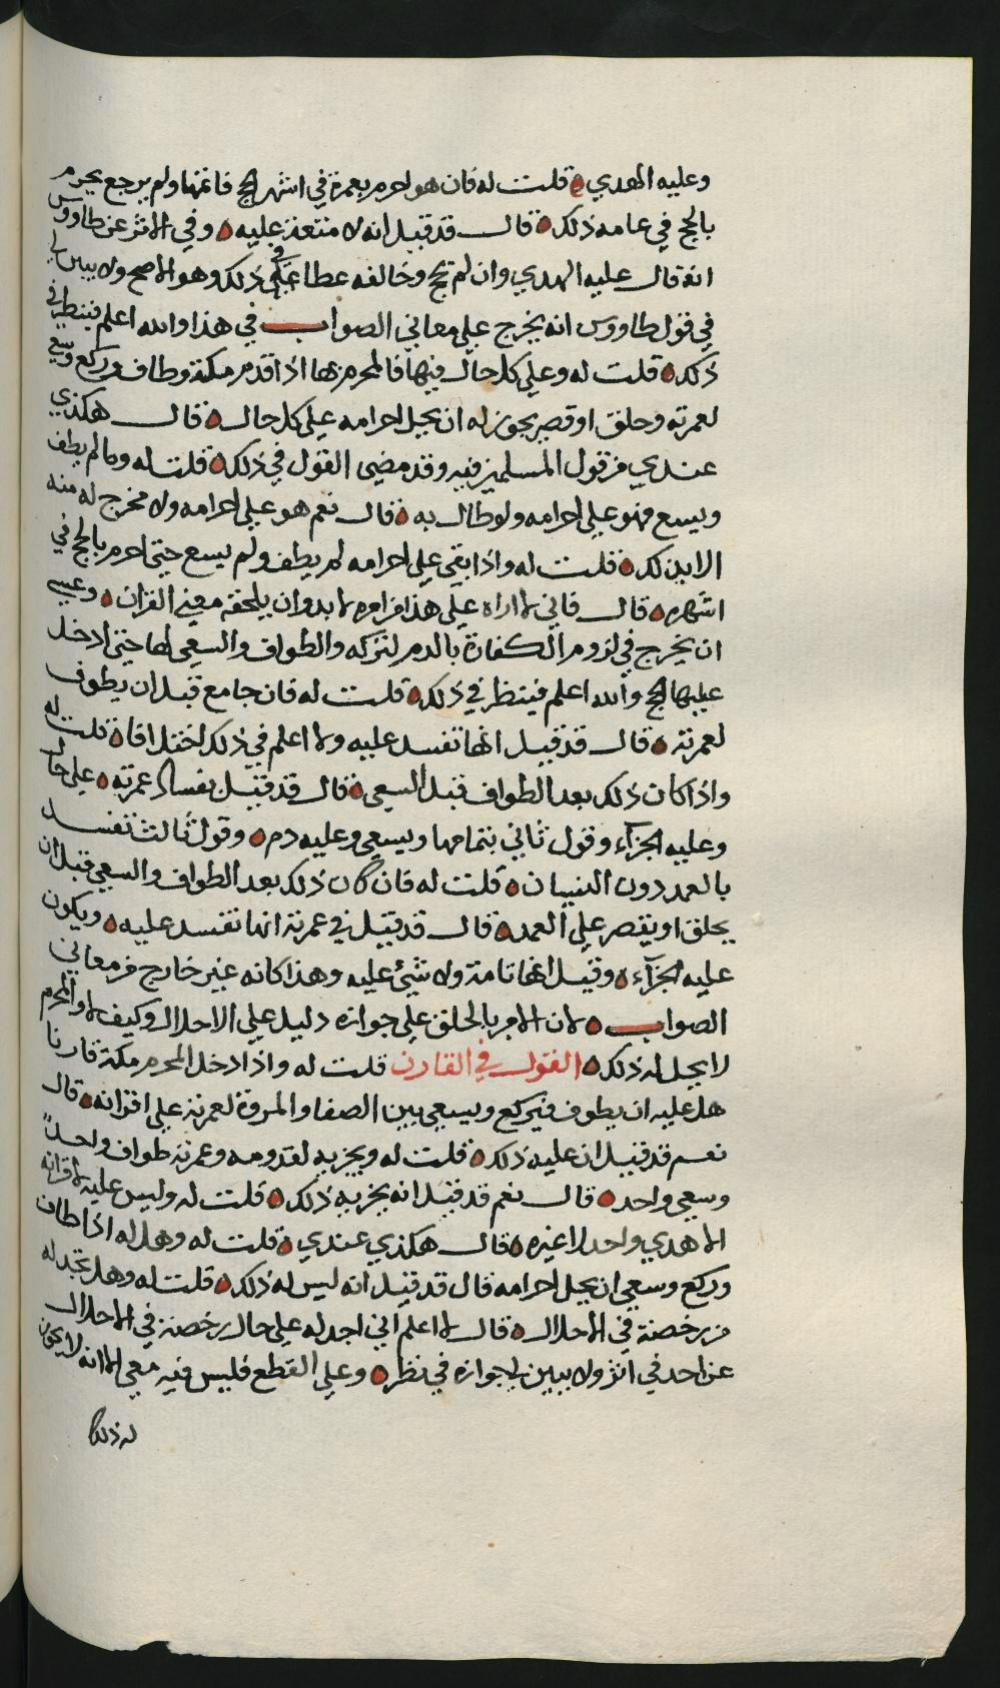 وعليه الهدي قلت له فان هو احرم بعمرة في اشهر الحج فاتمها ولم يرجع يحرم
بالحج في عامه ذلك قال قد قيل انه لا متعة عليه وفي الاثر عن طاووس
انه قال عليه الهدي وان لم يحج وخالفه عطا في ذلك وهو الاصح ولا يبين لي
في قول طاووس انه يخرج على معاني الصواب في هذا والله اعلم فينظر في
ذلك قلت له وعلى كل حال فيها فالمحرم بها اذا قدم مكة وطاف وركع وسع
لعمرته وحلق او قصر يجوز له ان يحل احرامه على كل حال قال هكذي
عندي من قول المسلمين فيه وقد مضى القول في ذلك قلت له ومالم يطف
ويسع فهو على احرامه ولو طال به قال نعم هو على احرامه ولا مخرج له منه
الا بذلك قلت له واذا بقي على احرامه لم يطف ولم يسع حتى احرم بالحج في
اشهره قال فاني لا اراه على هذا من امره لا بد وان يلحقه معنى القران وعسى
ان يخرج في لزوم الكفارة بالدم لتركه والطواف والسعي لها حتى ادخل
عليها الحج والله اعلم فينظر في ذلك قلت له فان جامع قبل ان يطوف
لعمرته قال قد قيل انها تفسد عليه ولا اعلم في ذلك اختلافا قلت له
واذا كان ذلك بعد الطواف قبل السعي قال قد قيل بفساد عمرته على حال
وعليه الجزآء وقول ثاني بتمامها ويسعى وعليه دم وقول ثالث تفسد
بالعمد دون النسيان قلت له فان كان ذلك بعد الطواف والسعي قبل ان
يحلق او يقصر على العمد قال قد قيل في عمرته انها تفسد عليه ويكون
عليه الجزآء وقيل انها تامة ولا شيئ عليه وهذا كانه غير خارج من معاني
الصواب لان الامر بالحلق على جوازه دليل على الاحلال وكيف لا والمحرم
لا يحل له ذلك القول في القارن قلت له واذا دخل المحرم مكة قارنا
هل عليه ان يطوف فيركع ويسعى بين الصفا والمروة لعمرته على اقرانه قال
نعم قد قيل ان عليه ذلك قلت له ويجزيه لقدومه وعمرته طواف واحد
وسعي واحد قال نعم قد قيل انه يجزيه ذلك قلت له وليس عليه لاقرانه
الا هدي واحد لا غيره قال هكذي عندي قلت له وهل له اذا طاف
وركع وسعى ان يحل احرامه قال قد قيل انه ليس له ذلك قلت له وهل تجد له
من رخصة في الاحلال قال لا اعلم اني اجد له على حال رخصة في الاحلال
عن احد في اثر ولا يبين لي جوازه في نظر وعلى القطع فليس فيه معي الا انه لا يجوز
له ذلك